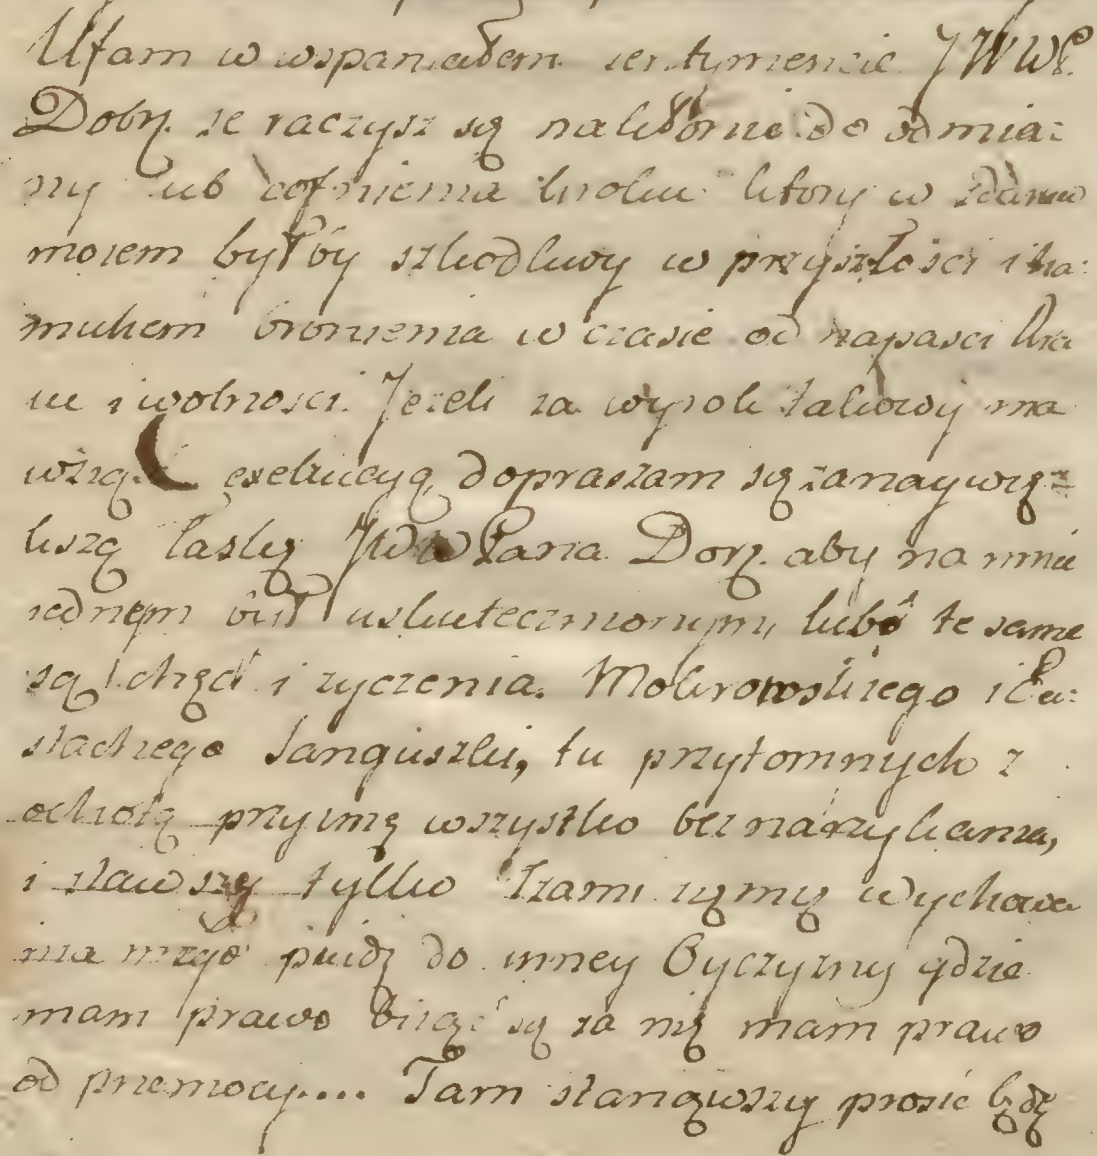 Ufam w wspaniałem sentymencie JWWP.
Dobrz. ze raczysz się nakłonić do odmia:
ny lub cofnienia kroku ktory w zdaniu
moiem byłby szkodliwy w przyszłości i ha:
mulcem bronienia w czasie od napasci kra
iu i wolnosci. Jezeli za wyrok takowy ma
wziąść exekucyą dopraszam się za naywię=
kszą łaskę JWW Pana Dorz. aby na mnie
iednem był uskutecznionym, lubo te same
są chęci i zyczenia. Mokronoskiego i Eu:
stachego Sanguszki, tu przytomnych z
ochotą przyimę wszystko bez narzykania,
i zławszy tylko łzami zięmię wychowa
nia mego puidę do inney Oyczyzny gdzie
mam prawo biąć się za nię mam prawo
od przemocy.... Tam stanąwszy prosic będę